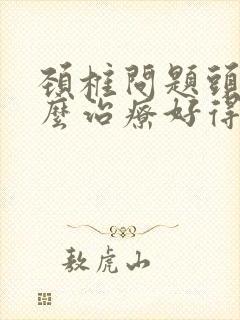 頸椎問題頭
麼治療好得
敖虎山